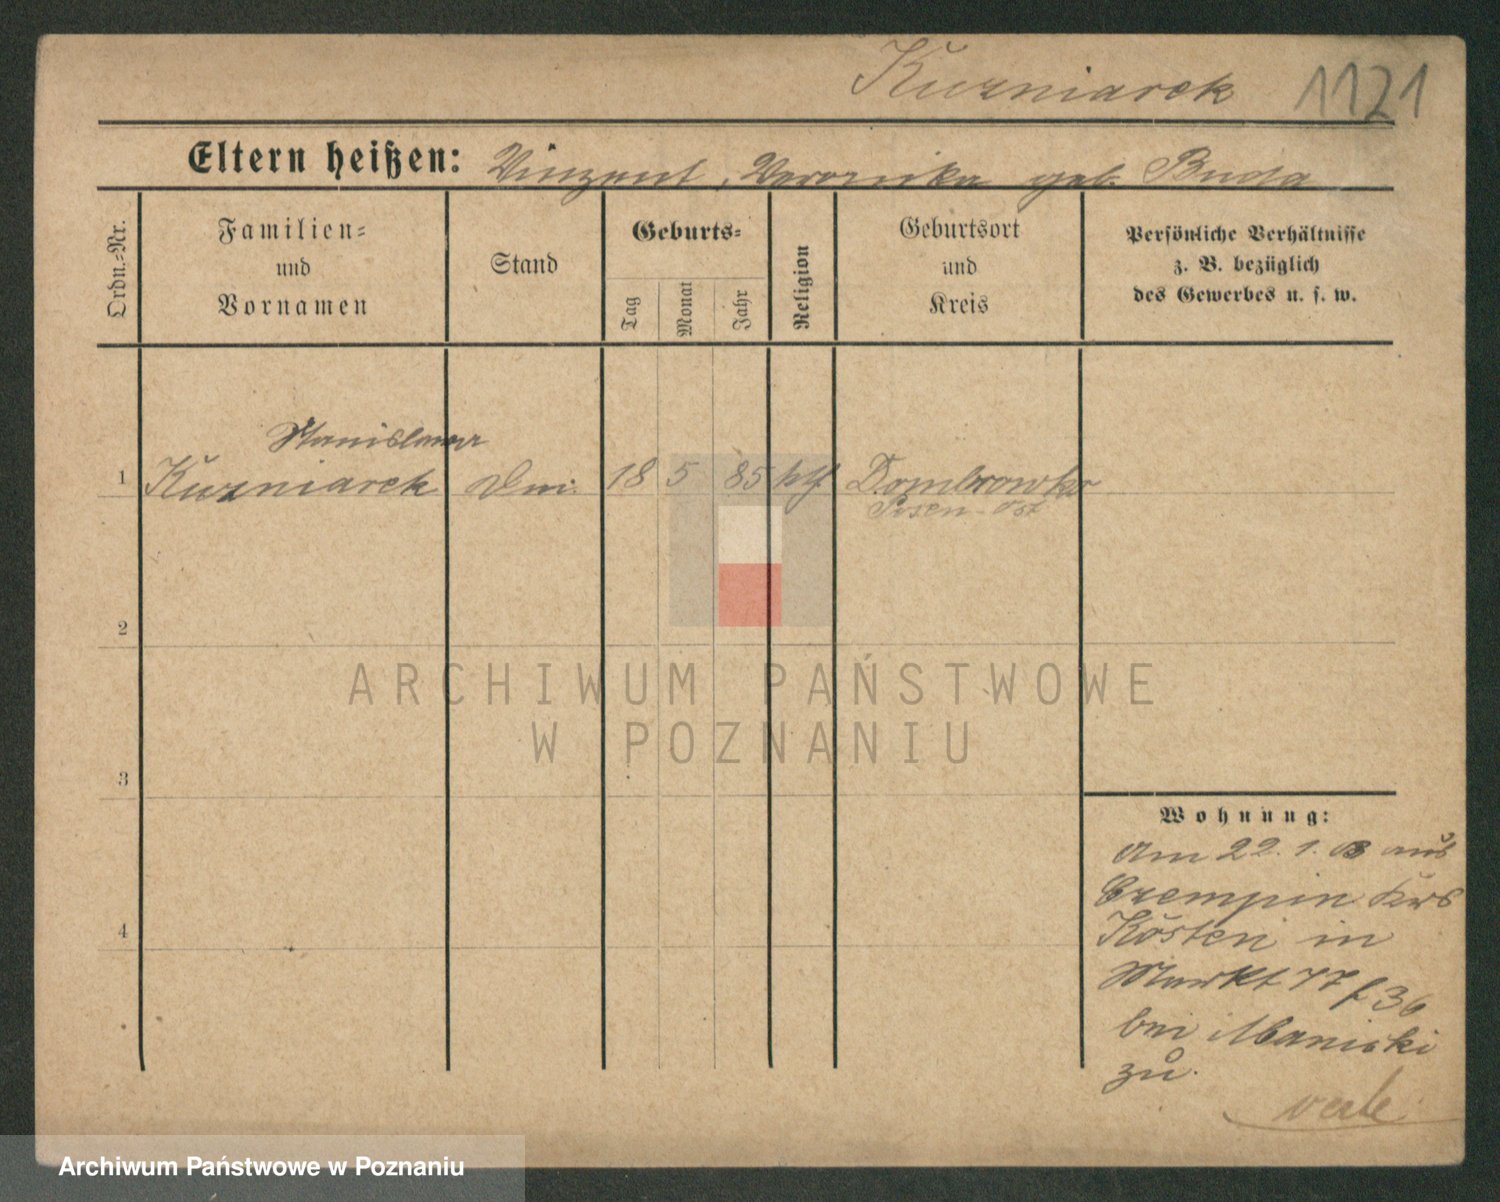 Kuzniarek 1121
Eltern heißen: Vinzent, Veronika geb. Buda
Ordn.-Nr.
Familien-
und
Vornamen
Stand
Geburts-
Tag
Monat
Jahr
Religion
Geburtsort
und
Kreis
Persönliche Verhältnisse
z. B. bezüglich
des Gewerbes u. s. w.
Stanislaus
1 Kuzniarek 18 5 85 kth Dombrowka
Posen-Ost
2
3
4
ARCHIWUM PAŃSTWOWE
W POZNANIU
Wohnung:
Am 22. 1. 03 aus
Czempin Krs
Kosten in
Markt 77
bei
zu.
Archiwum Państwowe w Poznaniu